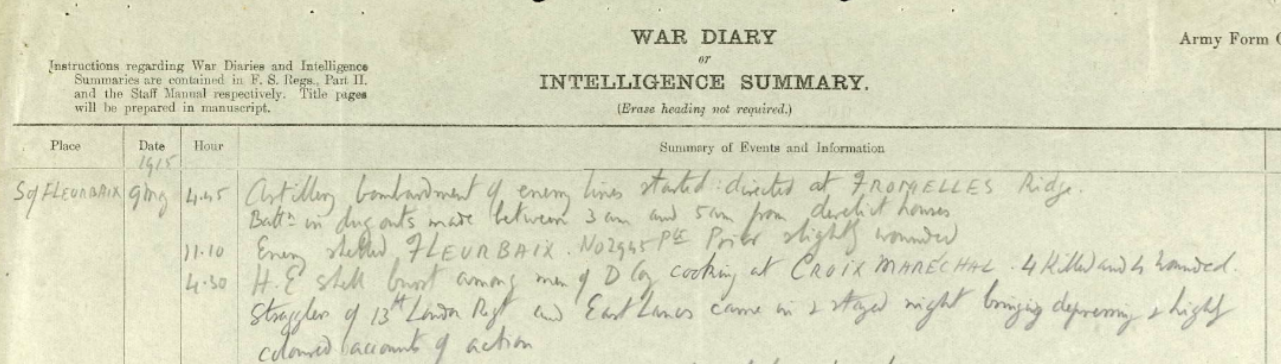 WAR DIARY
or
INTELLIGENCE SUMMARY.
(Erase heading not required.)
Army Form
Instructions regarding War Diaries and Intelligence
Summaries are contained in F. S. Regs., Part II.
and the Staff Manual respectively. Title pages
will be prepared in manuscript.
Place Date Hour Summary of Events and Information
1915
S of FLEURBAIX 9 4.45 Artillery bombardment of enemy lines started: directed at FROMELLES Ridge.
Battn in dug outs made between 3 am and 5 am from derelict houses
11.10 Enemy shelled FLEURBAIX. No 2945 Pte Prior slightly wounded
4.30 H.E shell burst among men of D Coy cooking at CROIX MARECHAL. 4 killed and 4 wounded.
Stragglers of 13th London Regt and East Lancs came in & stayed night bringing depressing & highly
coloured accounts of action